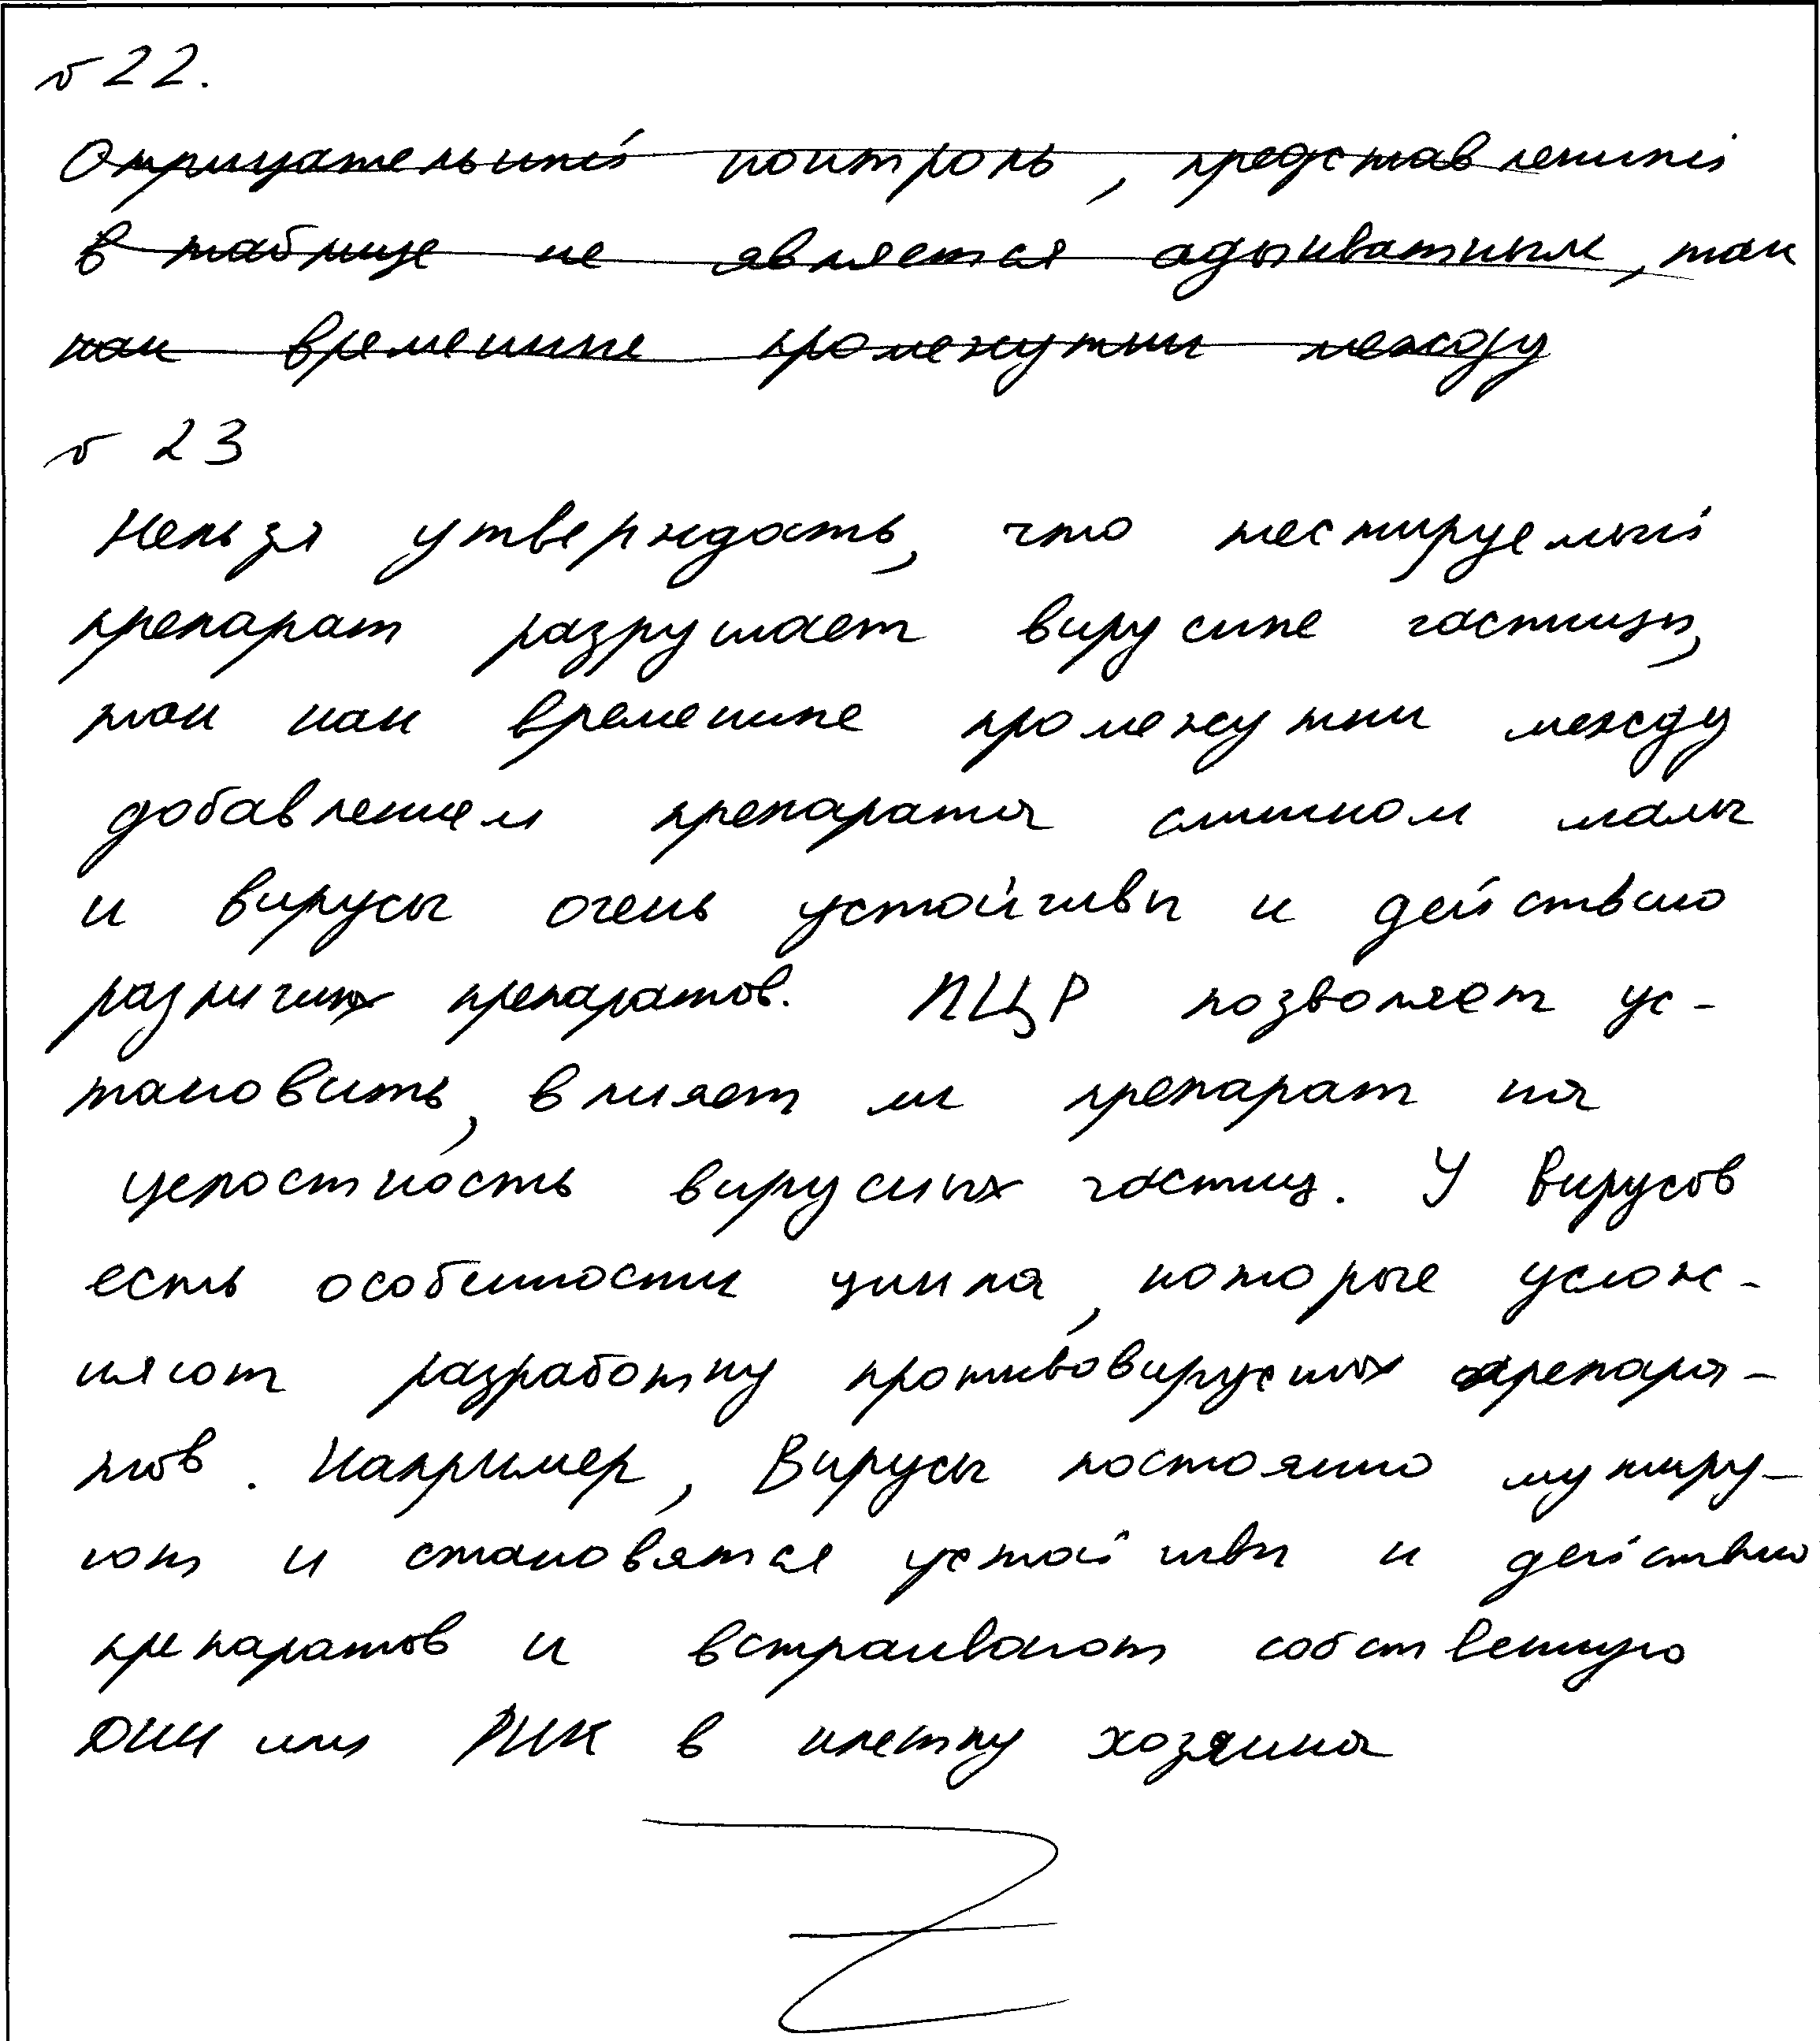 № 22.
Отрицательный контроль, представленный
в таблице не является адыкватным, так
как временные промежутки между
№ 23
Нельзя утверждать, что тестируемый
препарат разрушает вирусные частицы,
так как временные промежутки между
добавлением препарата слишком малы
и вирусы очень устойчивы к действию
различных препаратов. ПЦР позволяет ус-
тановить, влияет ли препарат на
целостность вирусных частиц. У вирусов
есть особенности цикла, которые услож-
няют разработку противовирусных препара-
тов. Например, Вирусы постоянно мутиру-
ют и становятся устойчивы к действию
препаратов и встраивают собственную
ДНК или РНК в клетку хозяина